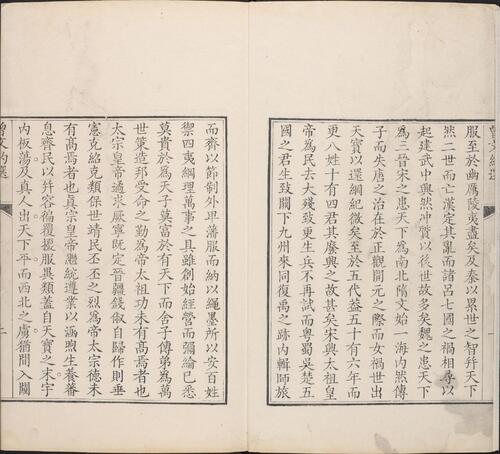 服至於幽厲陵夷盡矣及秦以累世之智幷天下
然二世而亡漢定其亂而諸呂七國之禍相尋以
起建武中興然沖質以後世故多矣魏之患天下
為三晉宋之患天下為南北隋文始一海內然傳
子而失唐之治在於正觀開元之際而女禍世出
天寶以還綱紀微矣至於五代葢五十有六年而
更八姓十有四君其廢興之故甚矣宋興太祖皇
帝為民去大殘致更生兵不再試而粵蜀吳楚五
國之君生致闕下九州來同復禹之跡內輯師旅
而齊以節制外卑藩服而納以繩墨所以安百姓
禦四夷綱理萬事之具雖創始經營而彌綸已悉
莫貴於為天子莫富於有天下而舍子傳弟為萬
世策造邦受命之勤為帝太祖功未有高焉者也
太宗皇帝遹求厥寧既定晉疆錢俶自歸作則垂
憲克紹克類保世靖民丕丕之烈為帝太宗德未
有高焉者也真宗皇帝繼統遵業以涵煦生養蕃
息齊民以幷容徧覆擾服異類蓋自天寶之末宇
內板蕩及真人出天下平而西北之虜猶間入闚
曾文約選
二